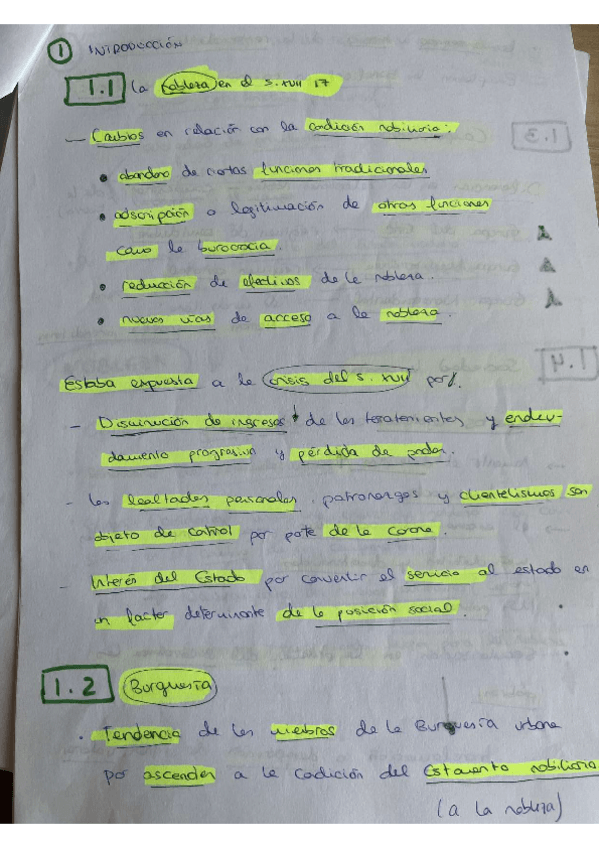 ① INTRODUCCIÓN
1.1 La nobleza en el s. XVII 17
— Cambios en relación con la condición nobiliaria:
• abandono de ciertas funciones tradicionales
• adscripción o legitimación de otras funciones
como la burocracia.
• reducción de efectivos de la nobleza.
• nuevas vías de acceso a la nobleza.
Estaba expuesta a la crisis del s. XVII por
- Disminución de ingresos de los terratenientes y endeu-
damiento progresivo y pérdida de poder.
- Las lealtades personales, patronazgos y clientelismos son
objeto de control por parte de la corona.
- Interés del Estado por convertir el servicio al estado en
un factor determinante de la posición social.
1.2 Burguesía
• Tendencia de los miembros de la Burguesía urbana
por ascender a la condición del Estamento nobiliario
(a la nobleza)
1.3
1.4